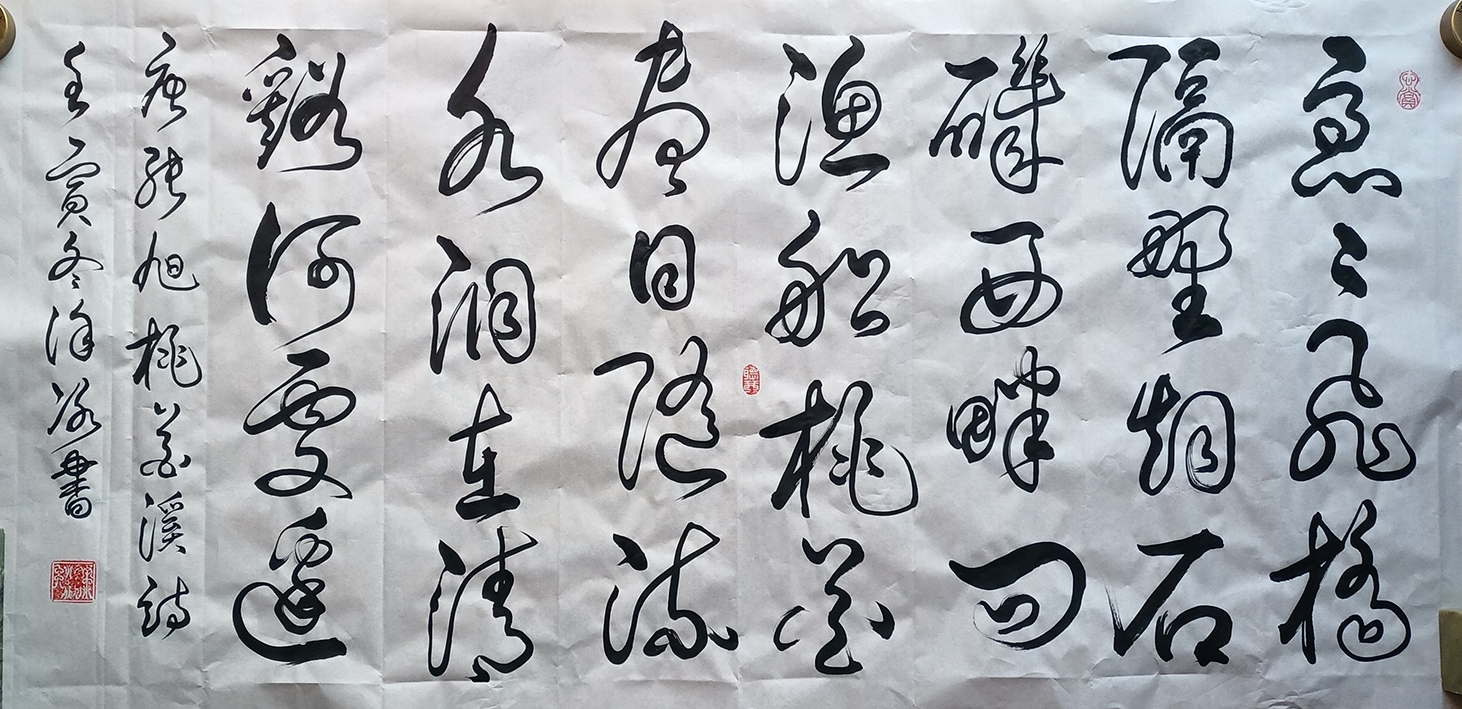 隱〻飛橋
隔野烟石
磯西畔問
漁船桃花
盡日隨流
水洞在清
谿何處邊
唐張旭桃花溪詩
壬寅冬徐書